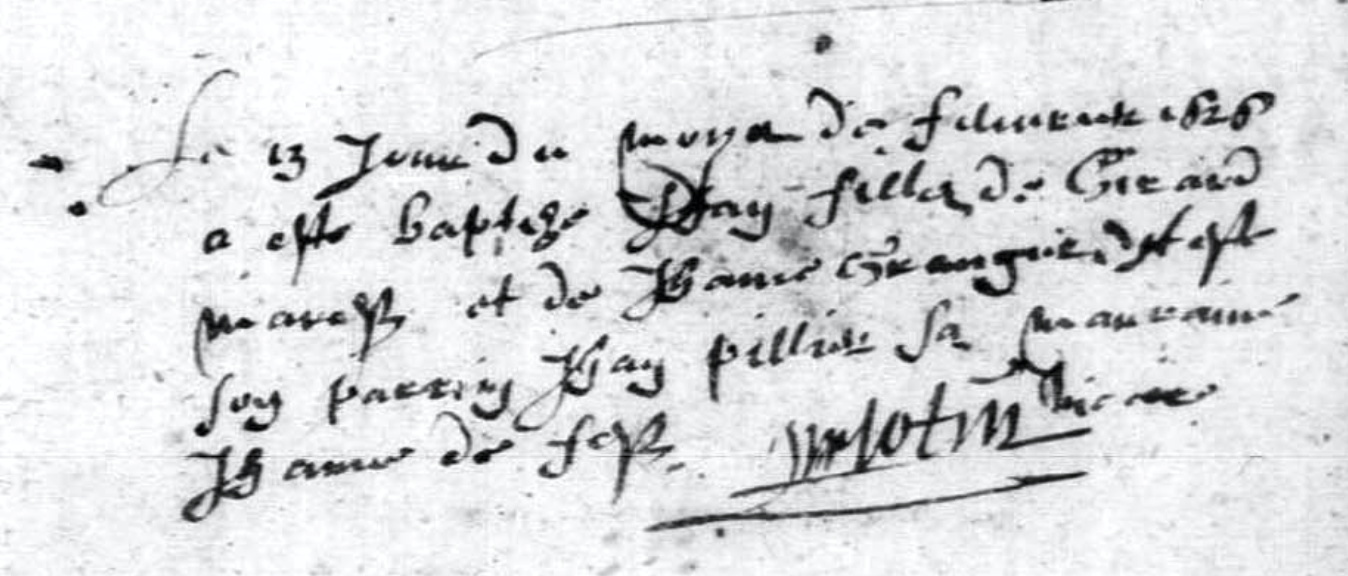 Le 13 Jour du moys de febvrier 1626
a este baptize Jhan fille de Girard
et de Jhanne Grangier est
son parrin Jhan pillier sa marraine
Jhanne de vicaire